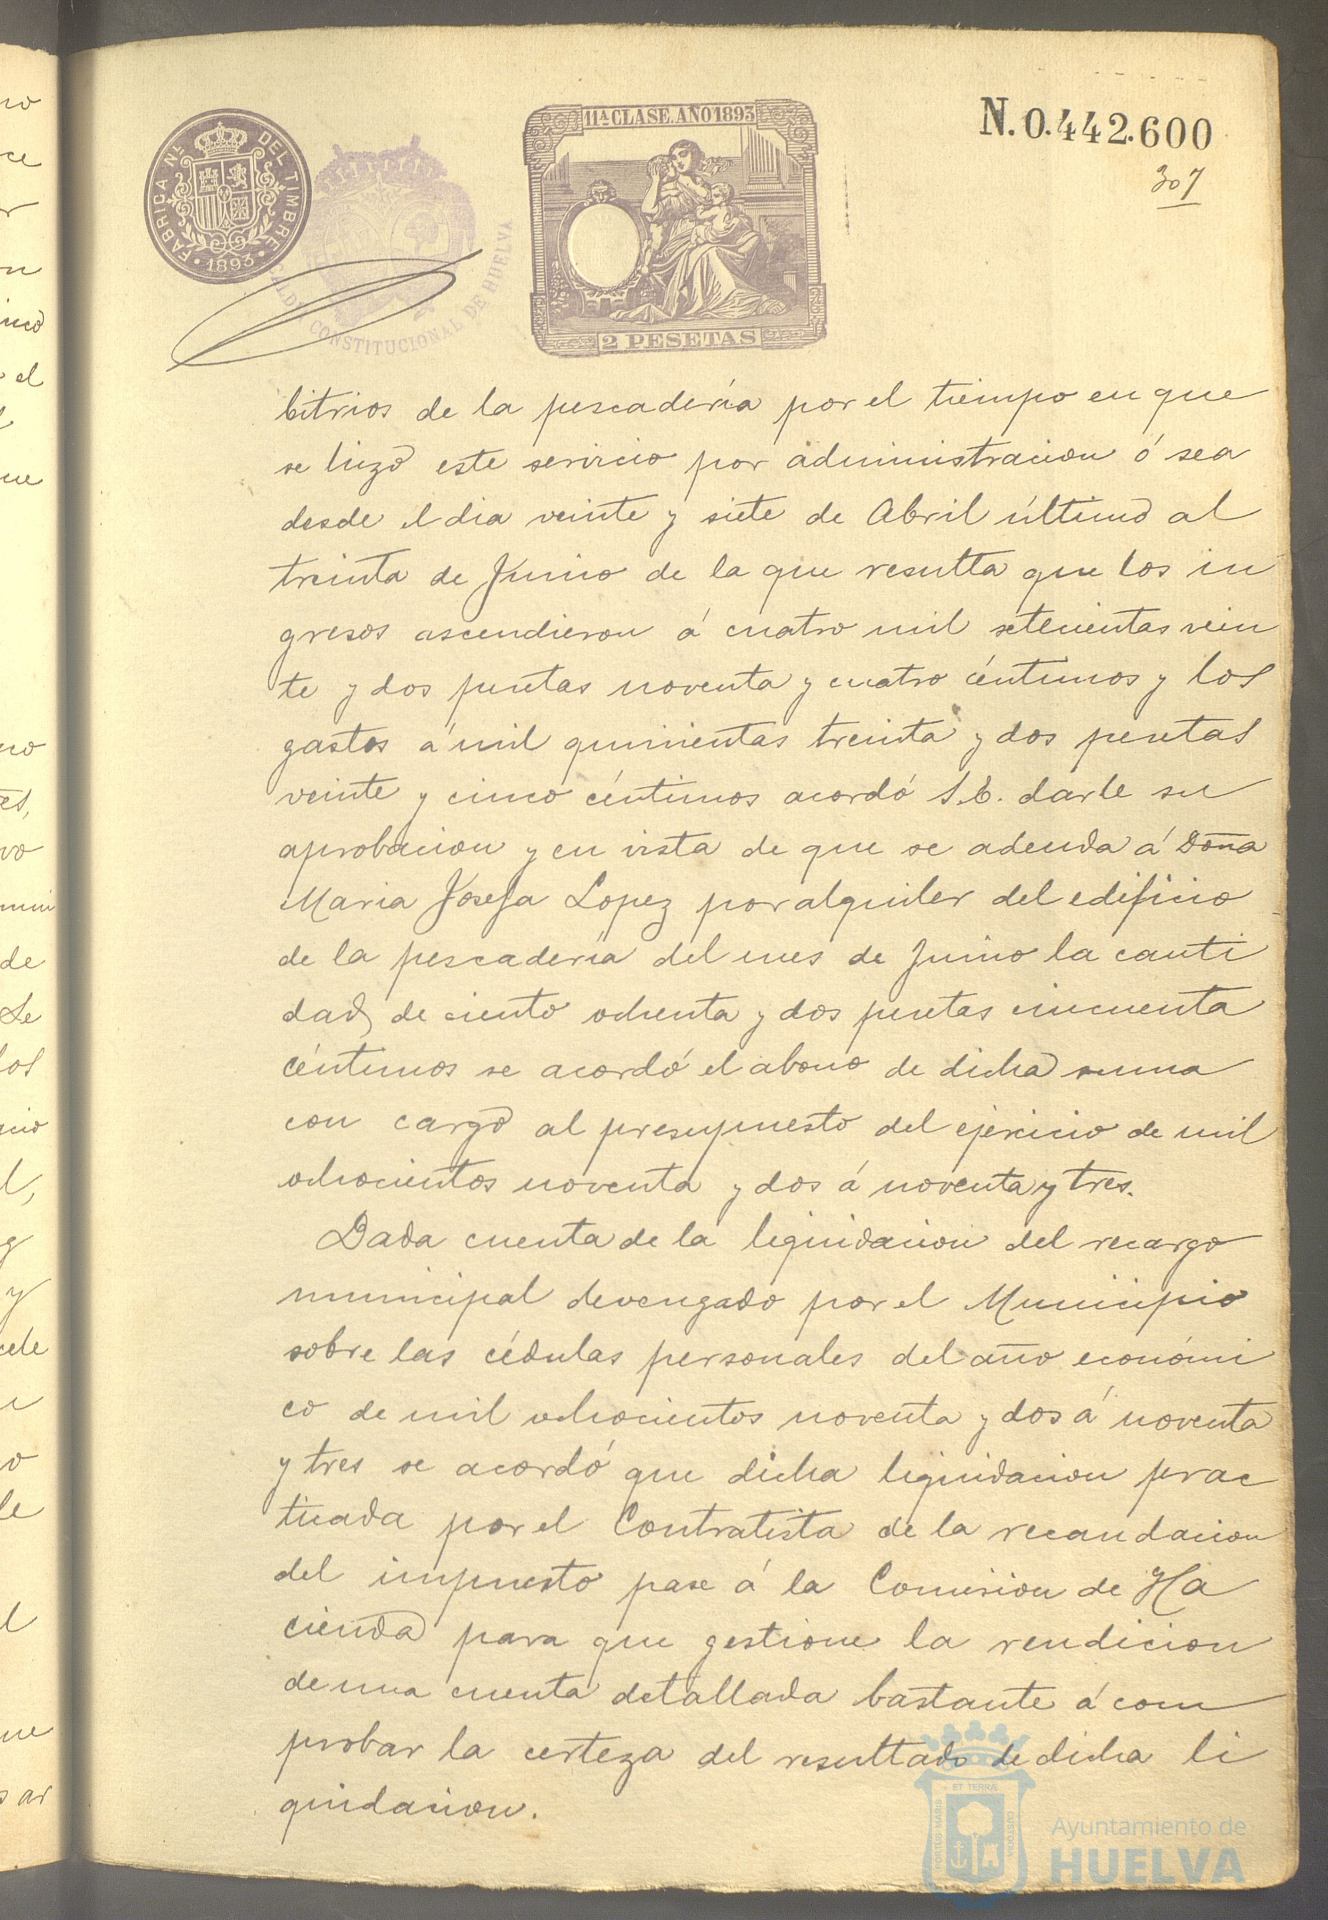 11ª CLASE. AÑO 1893
N. 0.442.600
307
FABRICA Nᴸ DEL TIMBRE
1893
ALCALDIA CONSTITUCIONAL DE HUELVA
2 PESETAS
bitrios de la pescadería por el tiempo en que
se hizo este servicio por administracion ó sea
desde el dia veinte y siete de Abril último al
treinta de Junio de la que resulta que los in
gresos ascendieron á cuatro mil setecientas vein
te y dos pesetas noventa y cuatro céntimos y los
gastos á mil quinientas treinta y dos pesetas
veinte y cinco céntimos acordó S.E. darle su
aprobacion y en vista de que se adeuda á Doña
Maria Josefa Lopez por alquiler del edificio
de la pescadería del mes de Junio la canti
dad de ciento ochenta y dos pesetas cincuenta
céntimos se acordó el abono de dicha suma
con cargo al presupuesto del ejercicio de mil
ochocientos noventa y dos á noventa y tres.
Dada cuenta de la liquidacion del recargo
municipal devengado por el Municipio
sobre las cédulas personales del año económi
co de mil ochocientos noventa y dos á noventa
y tres se acordó que dicha liquidacion prac
ticada por el Contratista de la recaudacion
del impuesto pase á la Comision de Ha
cienda para que gestione la rendicion
de una cuenta detallada bastante á com
probar la certeza del resultado de dicha li
quidacion.
PORTUS MARIS ET TERRÆ CUSTODIA
Ayuntamiento de
HUELVA